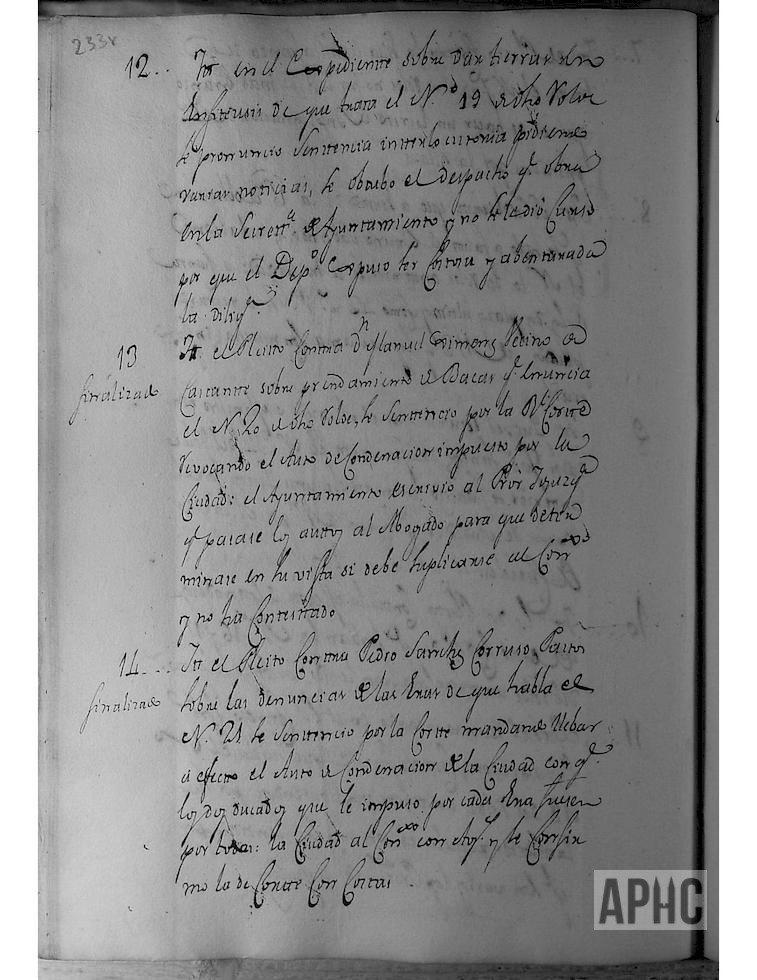 233v
12.. Itt en el Expediente sobre dar tierras en
Enfiteusis de que trata el N.º 19 de dho Volve
se pronuncio Sentencia interlocutoria pidiendo
varias noticias, se obtubo el despacho q.e obra
en la Secrett.a de Ayuntamiento y no se le dio Curso
por que el Dep.o expuso ser Costosa y abenturada
la dilig.a
13 Itt el Pleito Contra d.n Manuel Ximenez Vecino de
finalizado Cascante sobre prendamiento de Bacas q.e enuncia
el N. 20 de dho Volve, se Sentencio por la R.l Corte
revocando el Auto de Condenacion impuesto por la
Ciudad: el Ayuntamiento escrivio al Pror
q.e pasase los auttos al Abogado para que deter
minase en su vista si debe suplicarse al Con
y no ha Contestado
14... Itt el Pleito Contra Pedro Sanchez Corruso, Pastor
finalizado sobre las denuncias de las Eras de que habla el
N. 21 se Sentencio por la Corte mandando llebar
a efecto el Auto de Condenacion de la Ciudad con q.e
los dos ducados que le impuso por cada Era fuesen
por todas: la Ciudad al Con y se Confir
mo la de Corte Con Costas
APHC